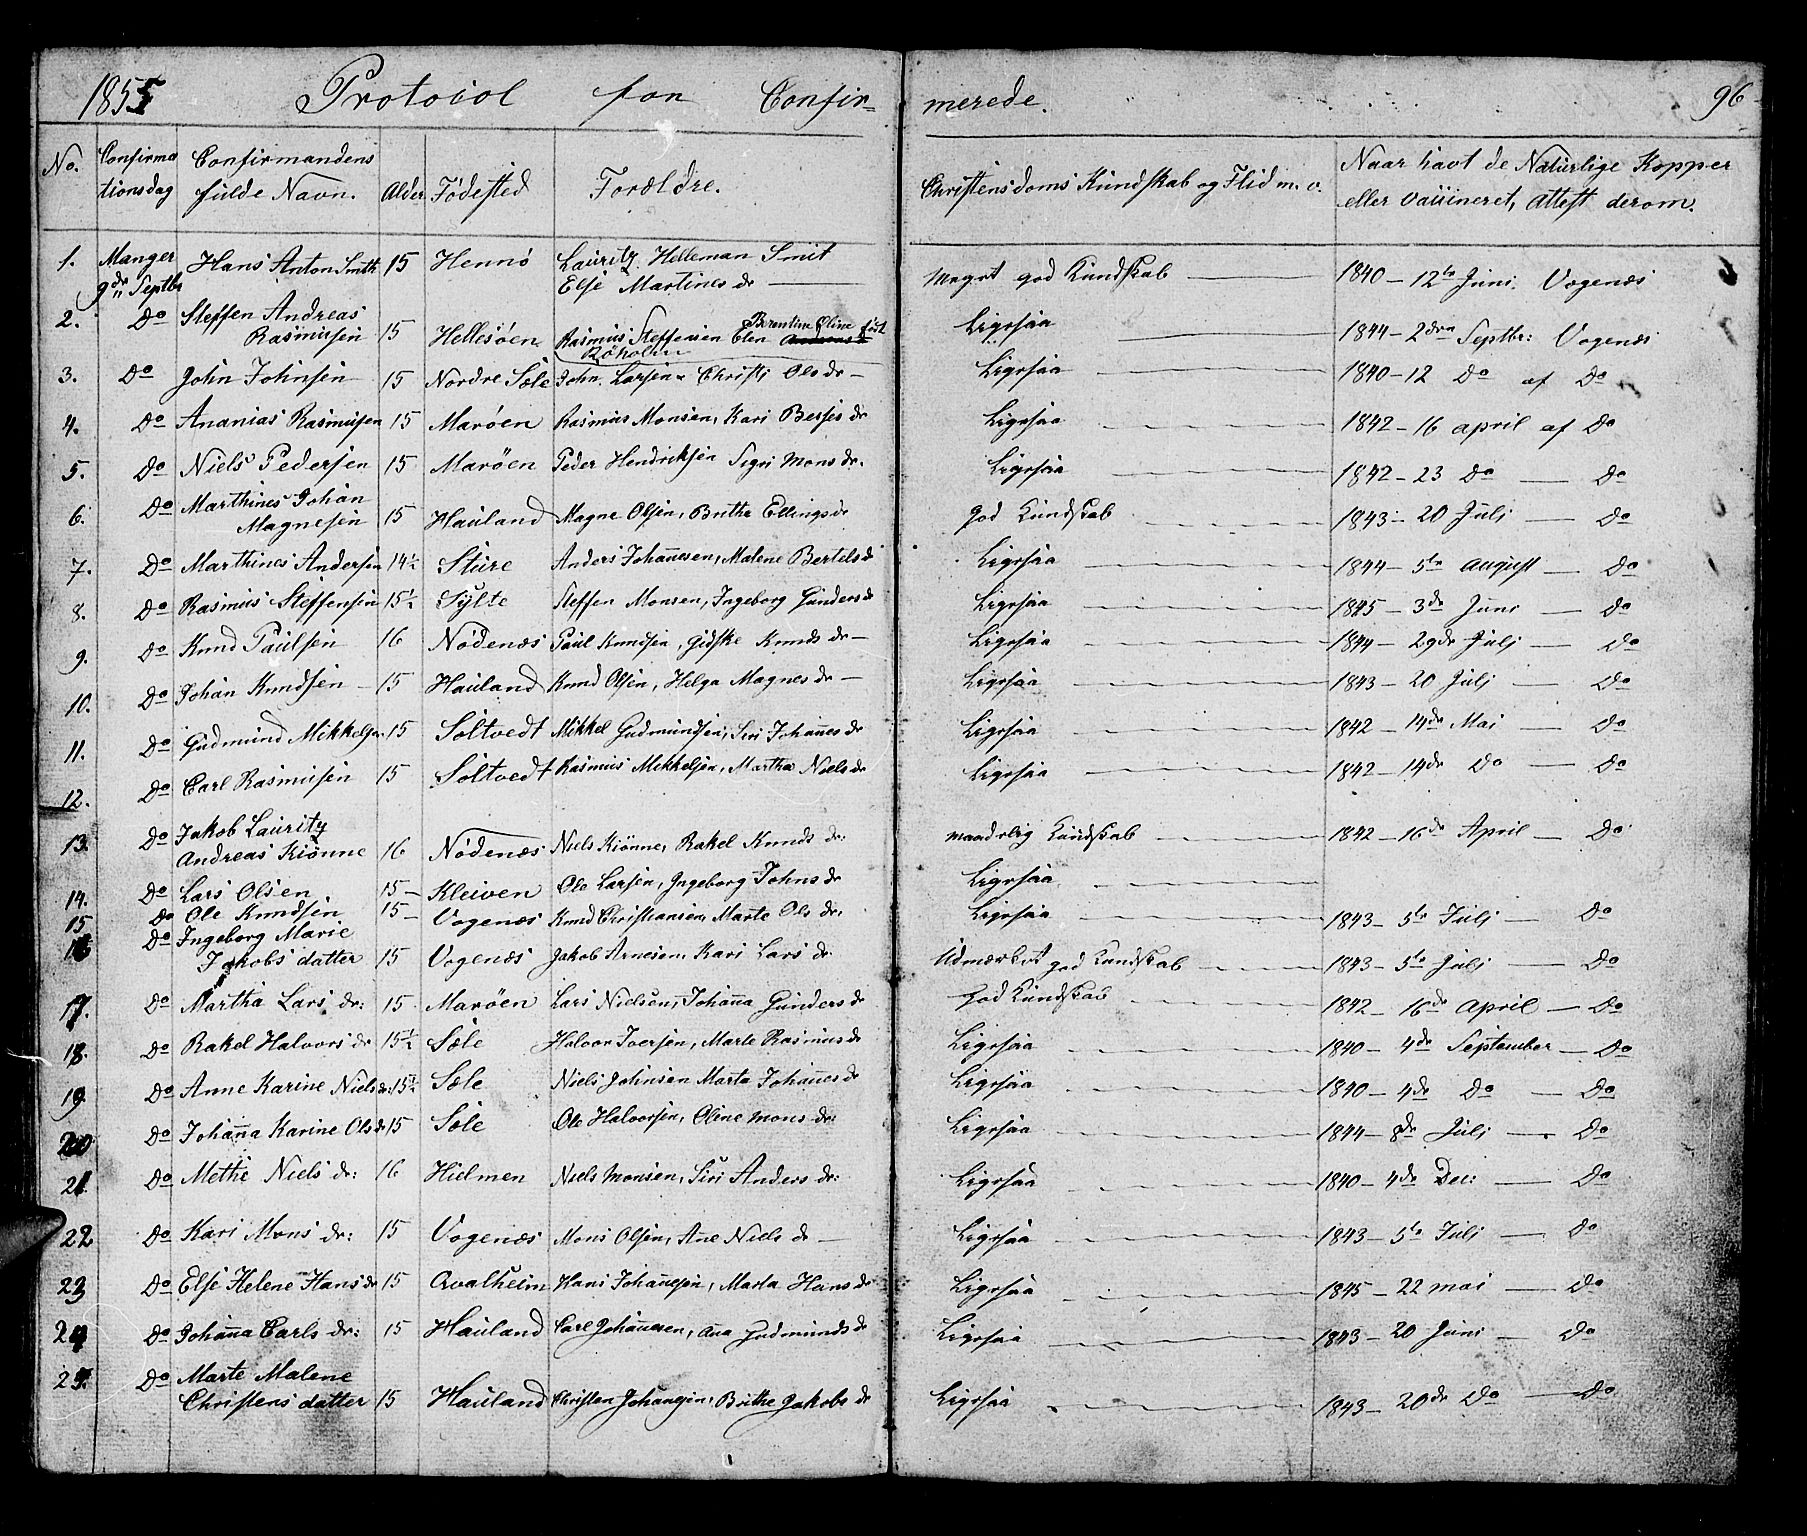 1855 Protocol for Confir- merede. 96
No. Confirma tionsdag Confirmandens fulde Navn. Alder Fødested Forældre. Christensdoms Kundskab og Flid m. v. Naar havt de Naturlige Kopper eller vaccineret, attest derom.
1. Manger 9de Septbr Hans Anton Smith 15 Hennø Lauritz Helleman Smit Else Martines dr — Meget god Kundskab — 1840 – 12te Juni. Vogenæs
2. Do Steffen Andreas Rasmusen 15 Hellesøen Rasmus Steffensen Elen Berentine Oline født Røholm Ligesaa — 1844 – 2den Septbr: Vogenæs
3. Do John Johnsen 15 Nordre Sæle John Larsen Christi Ols dr — Ligesaa 1840 – 12 Do af Do
4. Do Ananias Rasmusen 15 Marøen Rasmus Monsen, Kari Berjes dr Ligesaa 1842 – 16 april af Do
5. Do Niels Pedersen 15 Marøen Peder Hendriksen Sigri Mons dr. Ligesaa 1842 – 23 Do — Do
6. Do Marthines Johan Magnesen 15 Hauland Magne Olsen, Brithe Ellings dr God Kundskab 1843 – 20 Juli — Do
7. Do Marthines Andersen 14½ Sture Anders Johannesen, Malene Bertels dr Ligesaa 1844 – 5te august — Do
8. Do Rasmus Steffensen 15½ Sylte Steffen Monsen, Ingeborg Gunders dr Ligesaa 1845 – 3de Juni — Do
9. Do Knud Paulsen 16 Nødenæs Paul Knudsen, Gidske Knuds dr — Ligesaa 1844 – 29de Juli — Do
10. Do Johan Knudsen 15 Hauland Knud Olsen, Helga Magnes dr — Ligesaa 1843 – 20 Juli — Do
11. Do Gudmund Mikkelsen 15 Soltvedt Mikkel Gudmundsen, Siri Johannes dr Ligesaa 1842 – 14de Mai — Do
12. Do Carl Rasmusen 15 Soltvedt Rasmus Mikkelsen, Martha Niels dr Ligesaa 1842 – 14de Do — Do
13. Do Jakob Lauritz Andreas Kiønne 16 Nødenæs Niels Kiønne, Rakel Knuds dr: maadelig Kundskab 1842 – 16de April — Do
14. Do Lars Olsen 15 – Kleiven Ole Larsen, Ingeborg Johns dr Ligesaa
15 Do Ole Knudsen 15 – Vogenæs Knud Christiansen, Marte Ols dr: Ligesaa 1843 – 5te Juli — Do
16 Do Ingeborg Marie Jakobs datter 15 Vogenæs Jakob Arnesen, Kari Lars dr Udmærket god Kundskab 1843 – 5te Juli — Do
17. Do Martha Lars dr: 15 Marøen Lars Nielsen, Johanna Gunders dr God Kundskab 1842 – 16de April — Do
18. Do Rakel Halvors dr 15½ Sæle Halvor Iversen, Marte Rasmus dr Ligesaa 1840 – 4de September — Do
19. Do Anne Karine Niels dr: 15½ Sæle Niels Johnsen Marta Johannes dr Ligesaa 1840 – 4de Do — Do
20 Do Johanna Karine Ols dr 15 Sæle Ole Halvorsen, Oline Mons dr: Ligesaa 1844 – 8de Juli — Do
21. Do Methe Niels dr: 16 Hielmen Niels Monsen, Siri Anders dr: Ligesaa 1840 – 4de Dec: — Do
22 Do Kari Mons dr: 15 Vogenæs Mons Olsen, Ane Niels dr — Ligesaa 1843 – 5te Juli — Do
23 Do Else Helene Hans dr 15 Qvalheim Hans Johannesen, Marta Hans dr Ligesaa 1845 – 22 mai — Do
24 Do Johanna Carls dr: 15 Hauland Carl Johannesen, Ana Gudmunds dr Ligesaa 1843 – 20 Juni — Do
25. Do Marte Malene Christens datter 15 Hauland Christen Johannesen, Brithe Jakobs dr Ligesaa 1843 – 20de Do — Do